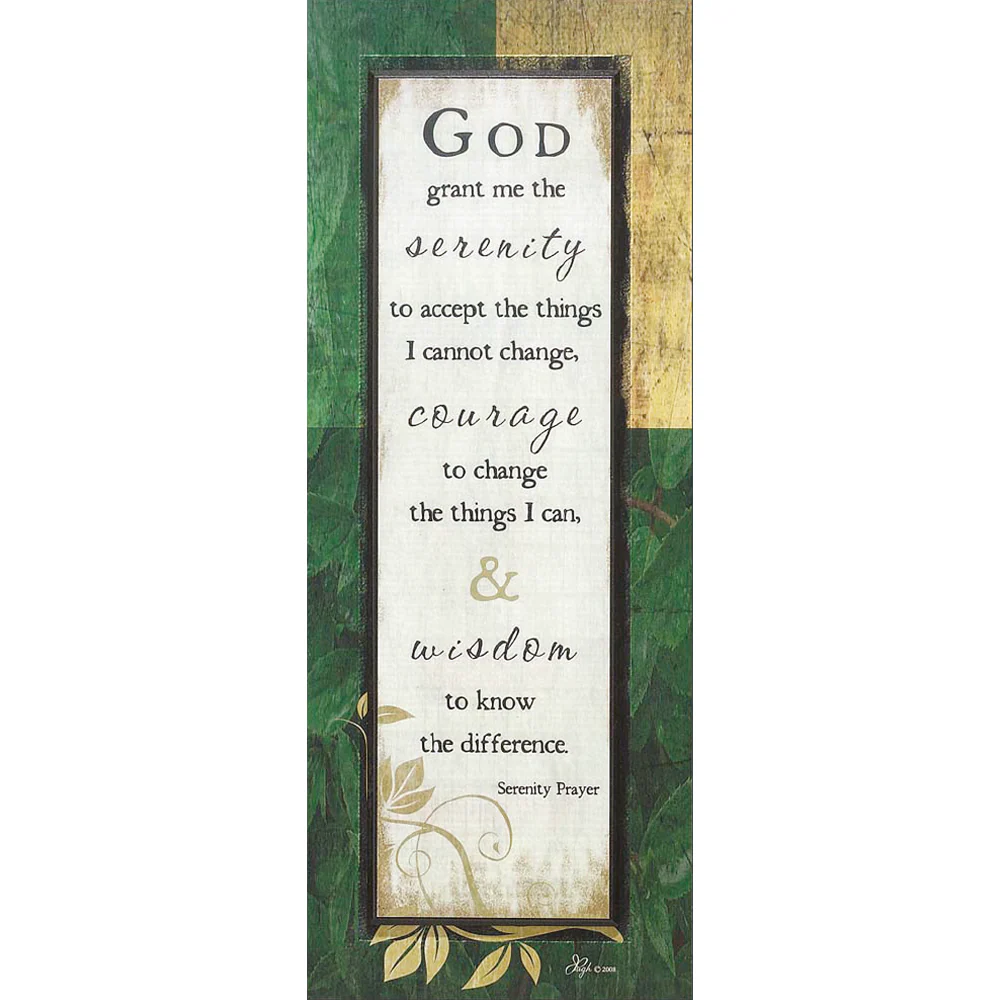 GOD
grant me the
serenity
to accept the things
I cannot change,
courage
to change
the things I can,
&
wisdom
to know
the difference.
Serenity Prayer
© 2008